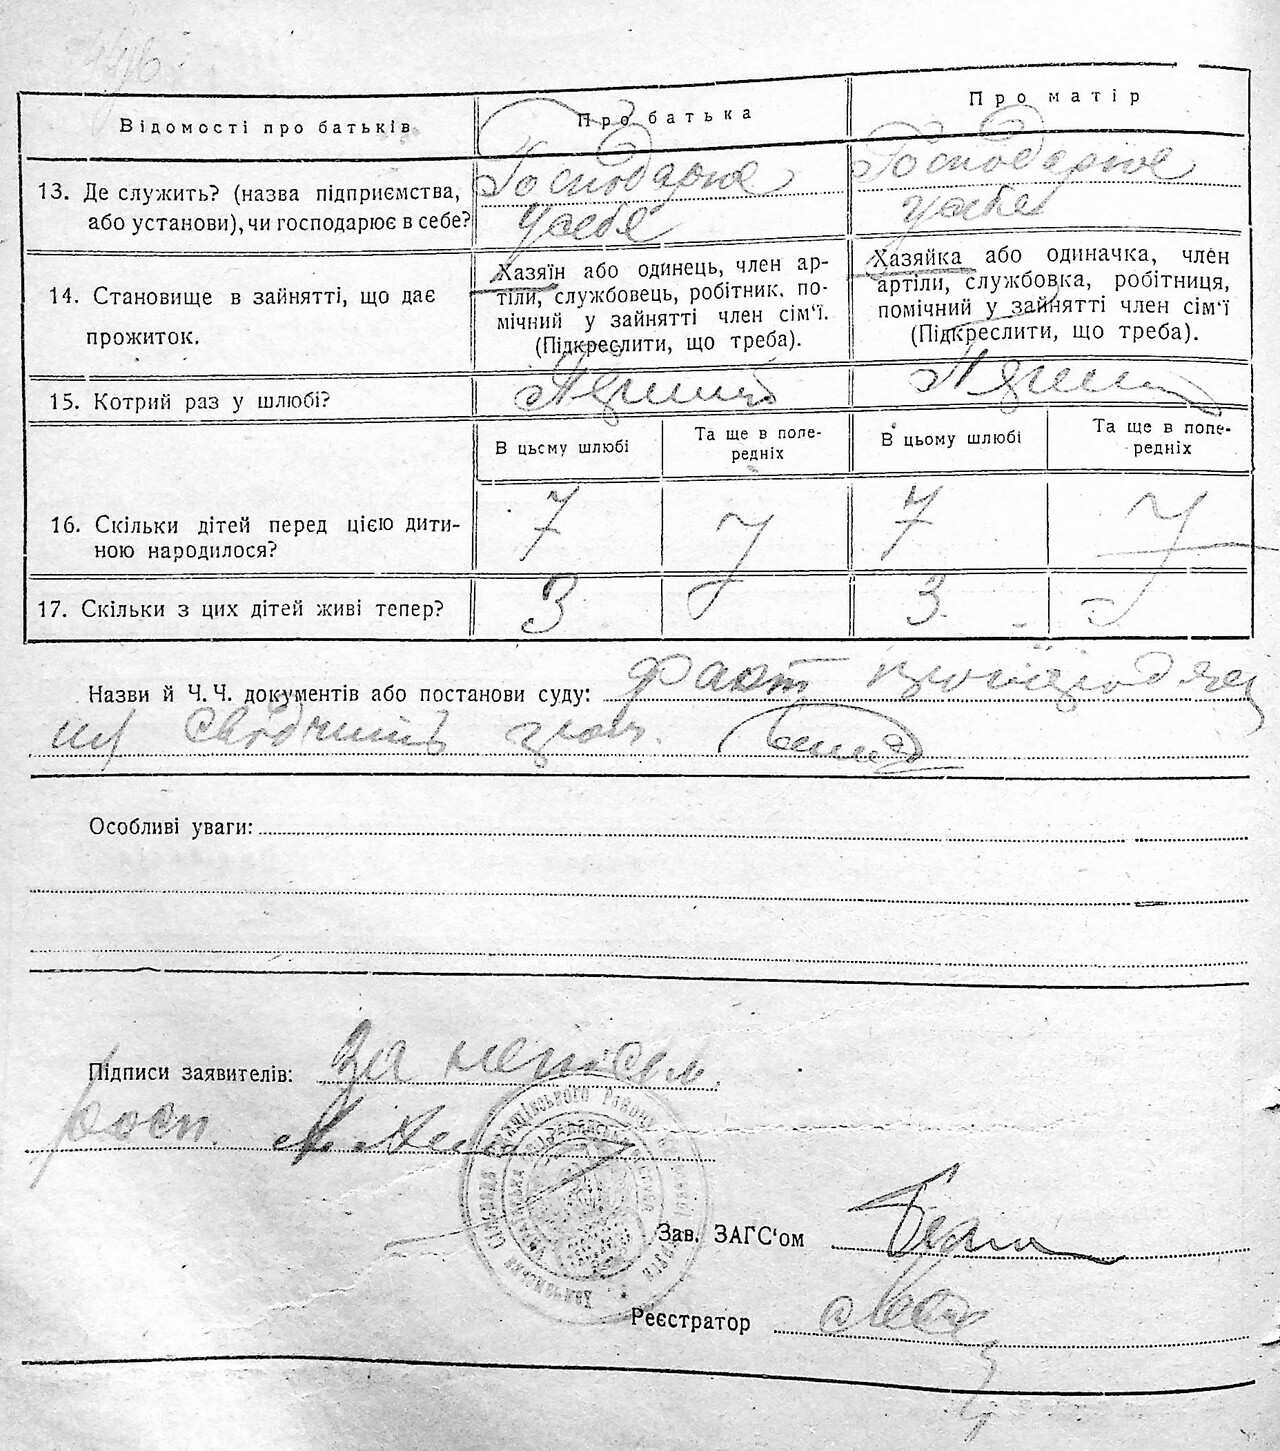 Відомості про батьків
Про батька
Про матір
13. Де служить? (назва підприємства, або установи), чи господарює в себе?
Господарює
у себе
Господарює
у себе
14. Становище в зайнятті, що дає
прожиток.
Хазяїн або одинець, член ар-
тіли, службовець, робітник. по-
мічний у зайнятті член сім'ї.
(Підкреслити, що треба).
Хазяйка або одиначка, член
артіли, службовка, робітниця,
помічний у зайнятті член сім'ї
(Підкреслити, що треба).
15. Котрий раз у шлюбі?
В цьому шлюбі
Та ще в попе-
редніх
В цьому шлюбі
Та ще в попе-
редніх
16. Скільки дітей перед цією дити-
ною народилося?
7
7
17. Скільки з цих дітей живі тепер?
3
3
Назви й Ч. Ч. документів або постанови суду: факт
свідчить
Особливі уваги:
Підписи заявителів: За непись.
росп.
Зав. ЗАГС'ом
Реєстратор